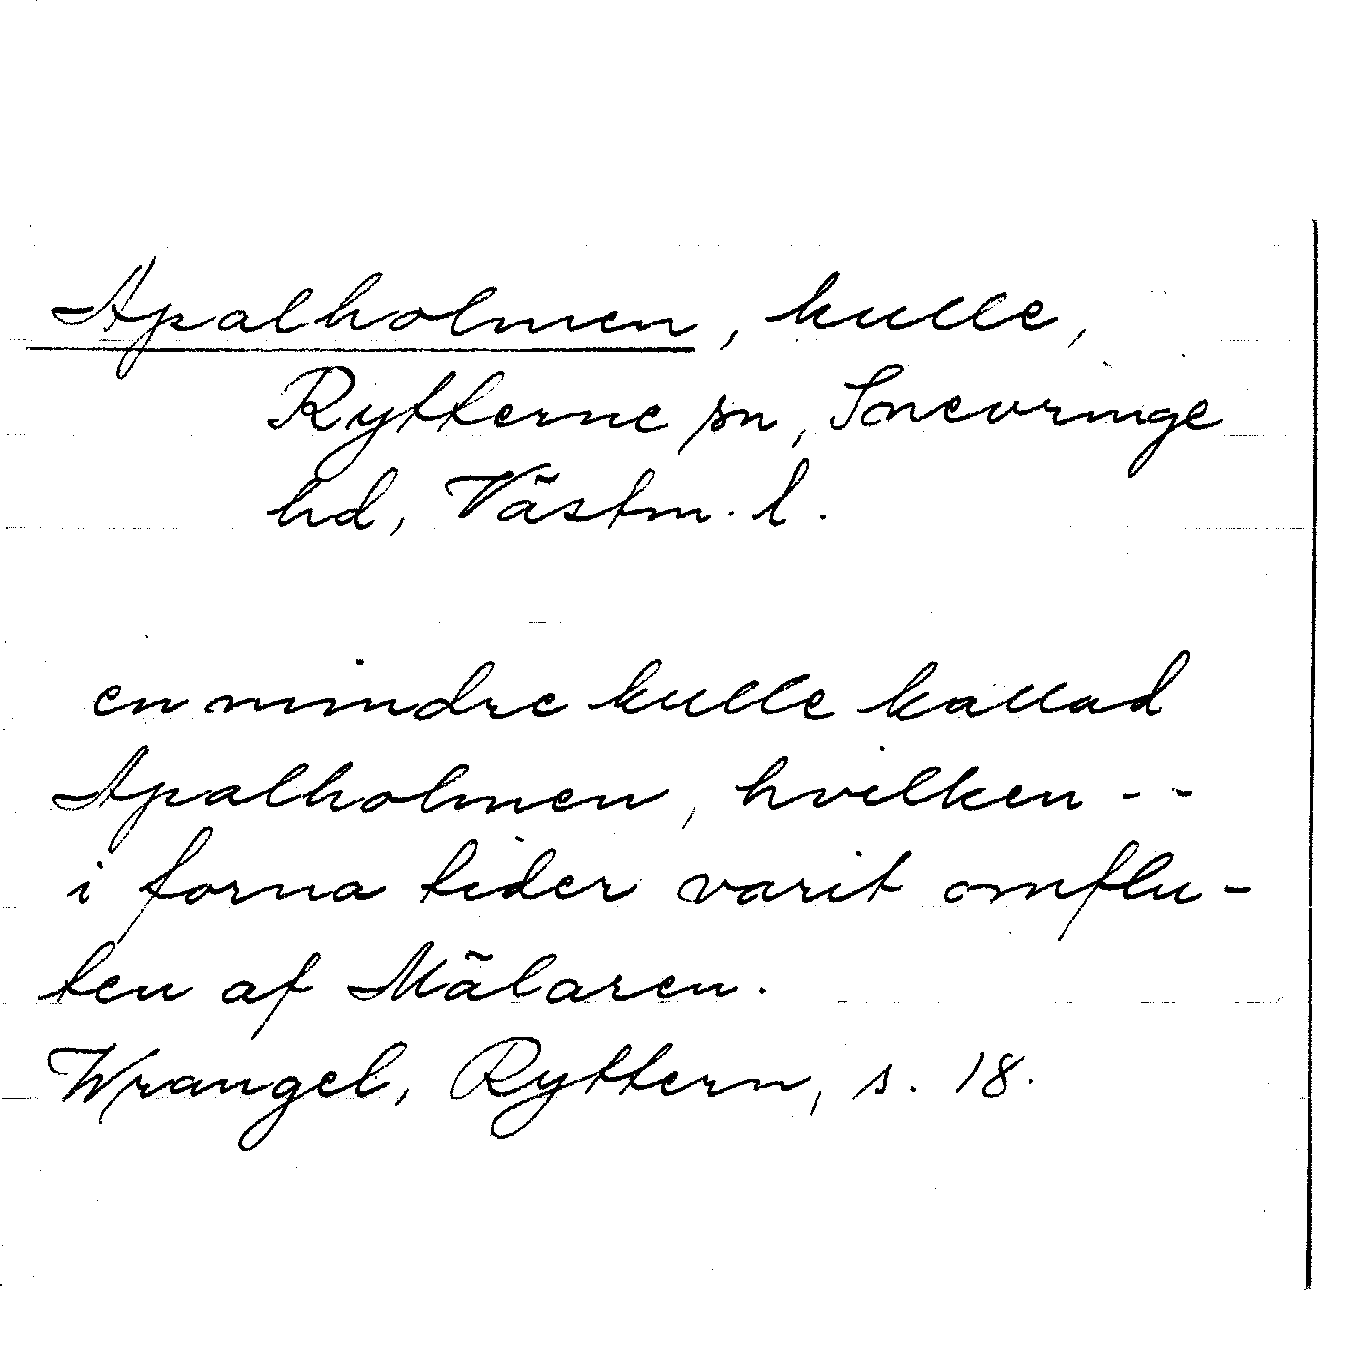 Apalholmen, kulle,
Rytterne sn, Snevringe
hd, Västm. l.
en mindre kulle kallad
Apalholmen, hvilken - -
i forna tider varit omflu-
ten af Mälaren.
Wrangel, Ryttern, s. 18.